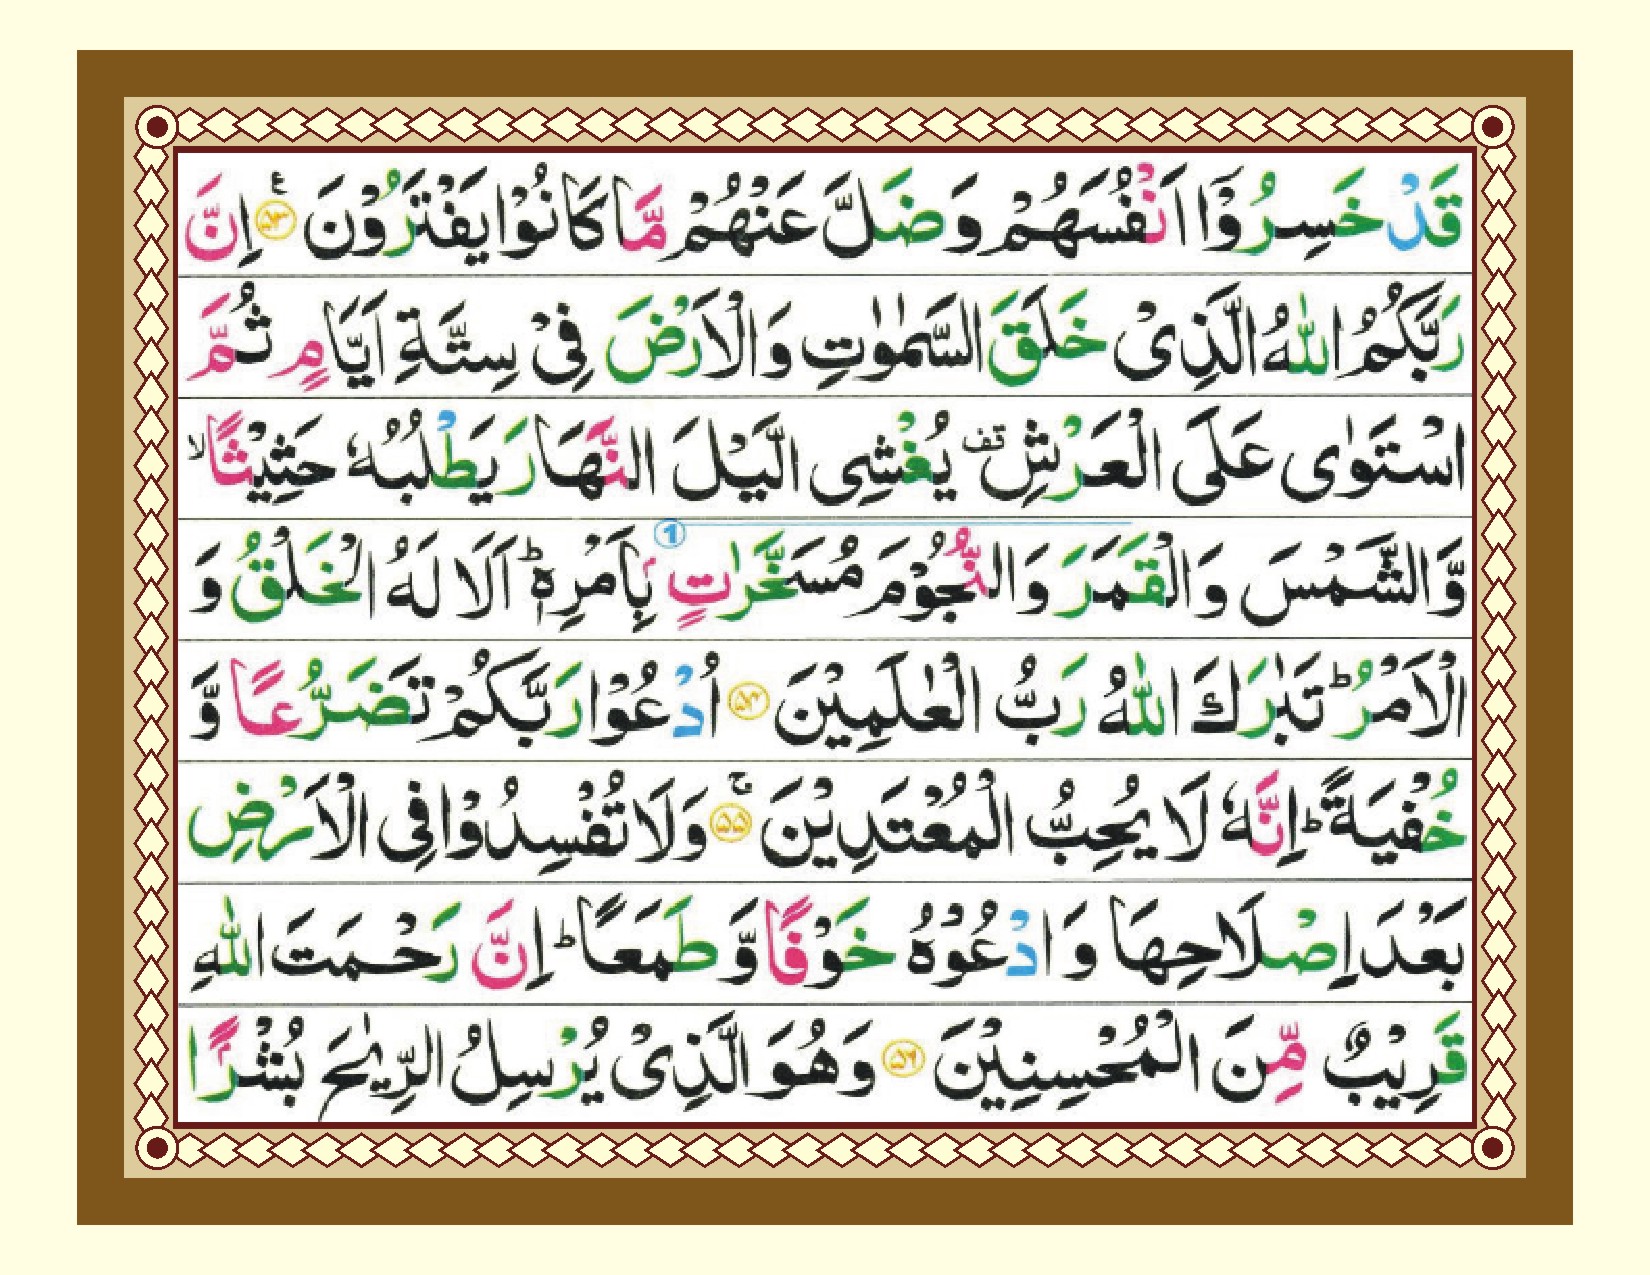 قَدْ خَسِرُوْۤا اَنْفُسَهُمْ وَضَلَّ عَنْهُمْ مَّا كَانُوْا یَفْتَرُوْنَ ۟۠ ﴿۵۳﴾ اِنَّ
رَبَّكُمُ اللّٰهُ الَّذِیْ خَلَقَ السَّمٰوٰتِ وَالْاَرْضَ فِیْ سِتَّةِ اَیَّامٍ ثُمَّ
اسْتَوٰی عَلَی الْعَرْشِ قف یُغْشِی الَّیْلَ النَّهَارَ یَطْلُبُهٗ حَثِیْثًا ۙ
وَّالشَّمْسَ وَالْقَمَرَ وَالنُّجُوْمَ مُسَخَّرٰتٍۭ 1 بِاَمْرِهٖ ؕ اَلَا لَهُ الْخَلْقُ وَ
الْاَمْرُ ؕ تَبٰرَكَ اللّٰهُ رَبُّ الْعٰلَمِیْنَ ﴿۵۴﴾ اُدْعُوْا رَبَّكُمْ تَضَرُّعًا وَّ
خُفْیَةً ؕ اِنَّهٗ لَا یُحِبُّ الْمُعْتَدِیْنَ ۚ ﴿۵۵﴾ وَلَا تُفْسِدُوْا فِی الْاَرْضِ
بَعْدَ اِصْلَاحِهَا وَ ادْعُوْهُ خَوْفًا وَّ طَمَعًا ؕ اِنَّ رَحْمَتَ اللّٰهِ
قَرِیْبٌ مِّنَ الْمُحْسِنِیْنَ ﴿۵۶﴾ وَهُوَ الَّذِیْ یُرْسِلُ الرِّیٰحَ بُشْرًۢا